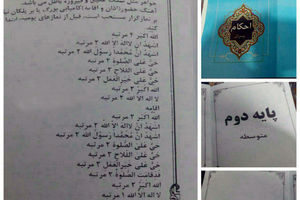 نمازگزار مستحب است، قبل از نمازهای یومیه، ابتدا
الله اکبر ۴ مرتبه
اشهد ان لااله الا الله ۲ مرتبه
اشهد ان محمدا رسول الله ۲ مرتبه
حی علی الصلوة ۲ مرتبه
حی علی الفلاح ۲ مرتبه
حی علی خیر العمل ۲ مرتبه
الله اکبر ۲ مرتبه
لا اله الا الله ۲ مرتبه
اقامه
الله اکبر ۲ مرتبه
اشهد ان لااله الا الله ۲ مرتبه
اشهد ان محمدا رسول الله ۲ مرتبه
حی علی الصلوة ۲ مرتبه
حی علی الفلاح ۲ مرتبه
حی علی خیر العمل ۲ مرتبه
قدقامت الصلوة ۲ مرتبه
الله اکبر ۲ مرتبه
لا اله الا الله ۱ مرتبه
احکام
پایه دوم
متوسطه